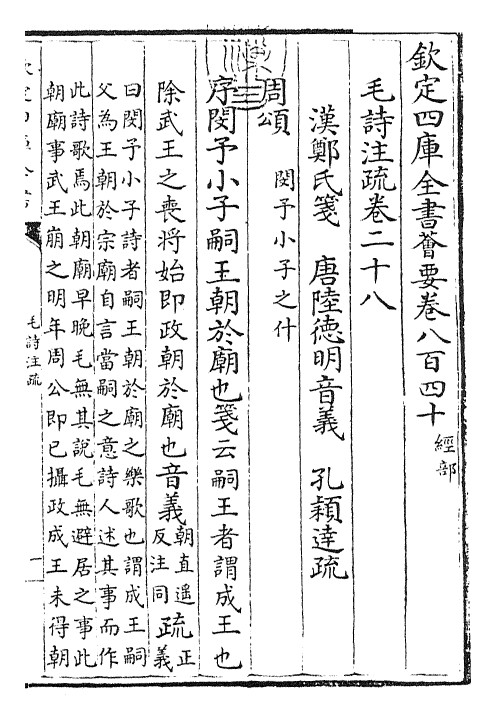 欽定四庫全書薈要卷八百四十
經部
毛詩注疏卷二十八
漢鄭氏箋　唐陸德明音義　孔穎達疏
周頌
閔予小子之什
序閔予小子嗣王朝於廟也箋云嗣王者謂成王也
除武王之喪將始即政朝於廟也音義朝直遥
反注同疏正
義
曰閔予小子詩者嗣王朝於廟之樂歌也謂成王嗣
父為王朝於宗廟自言當嗣之意詩人述其事而作
此詩歌焉此朝廟早晚毛無其說毛無避居之事此
朝廟事武王崩之明年周公即已攝政成王未得朝
毛詩注疏
一